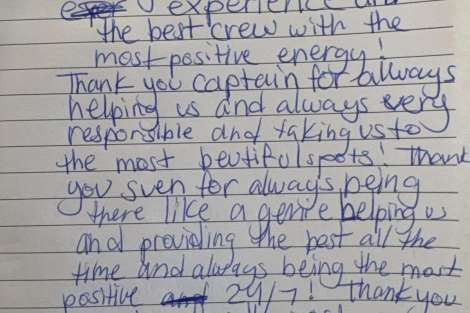 experience and
the best crew with the
most positive energy!
Thank you captain for allways
helping us and always very
responsible and taking us to
the most beutiful spots! Thank
you sven for always being
there like a genie helping us
and providing the best all the
time and always being the most
positive 24/7! Thank you